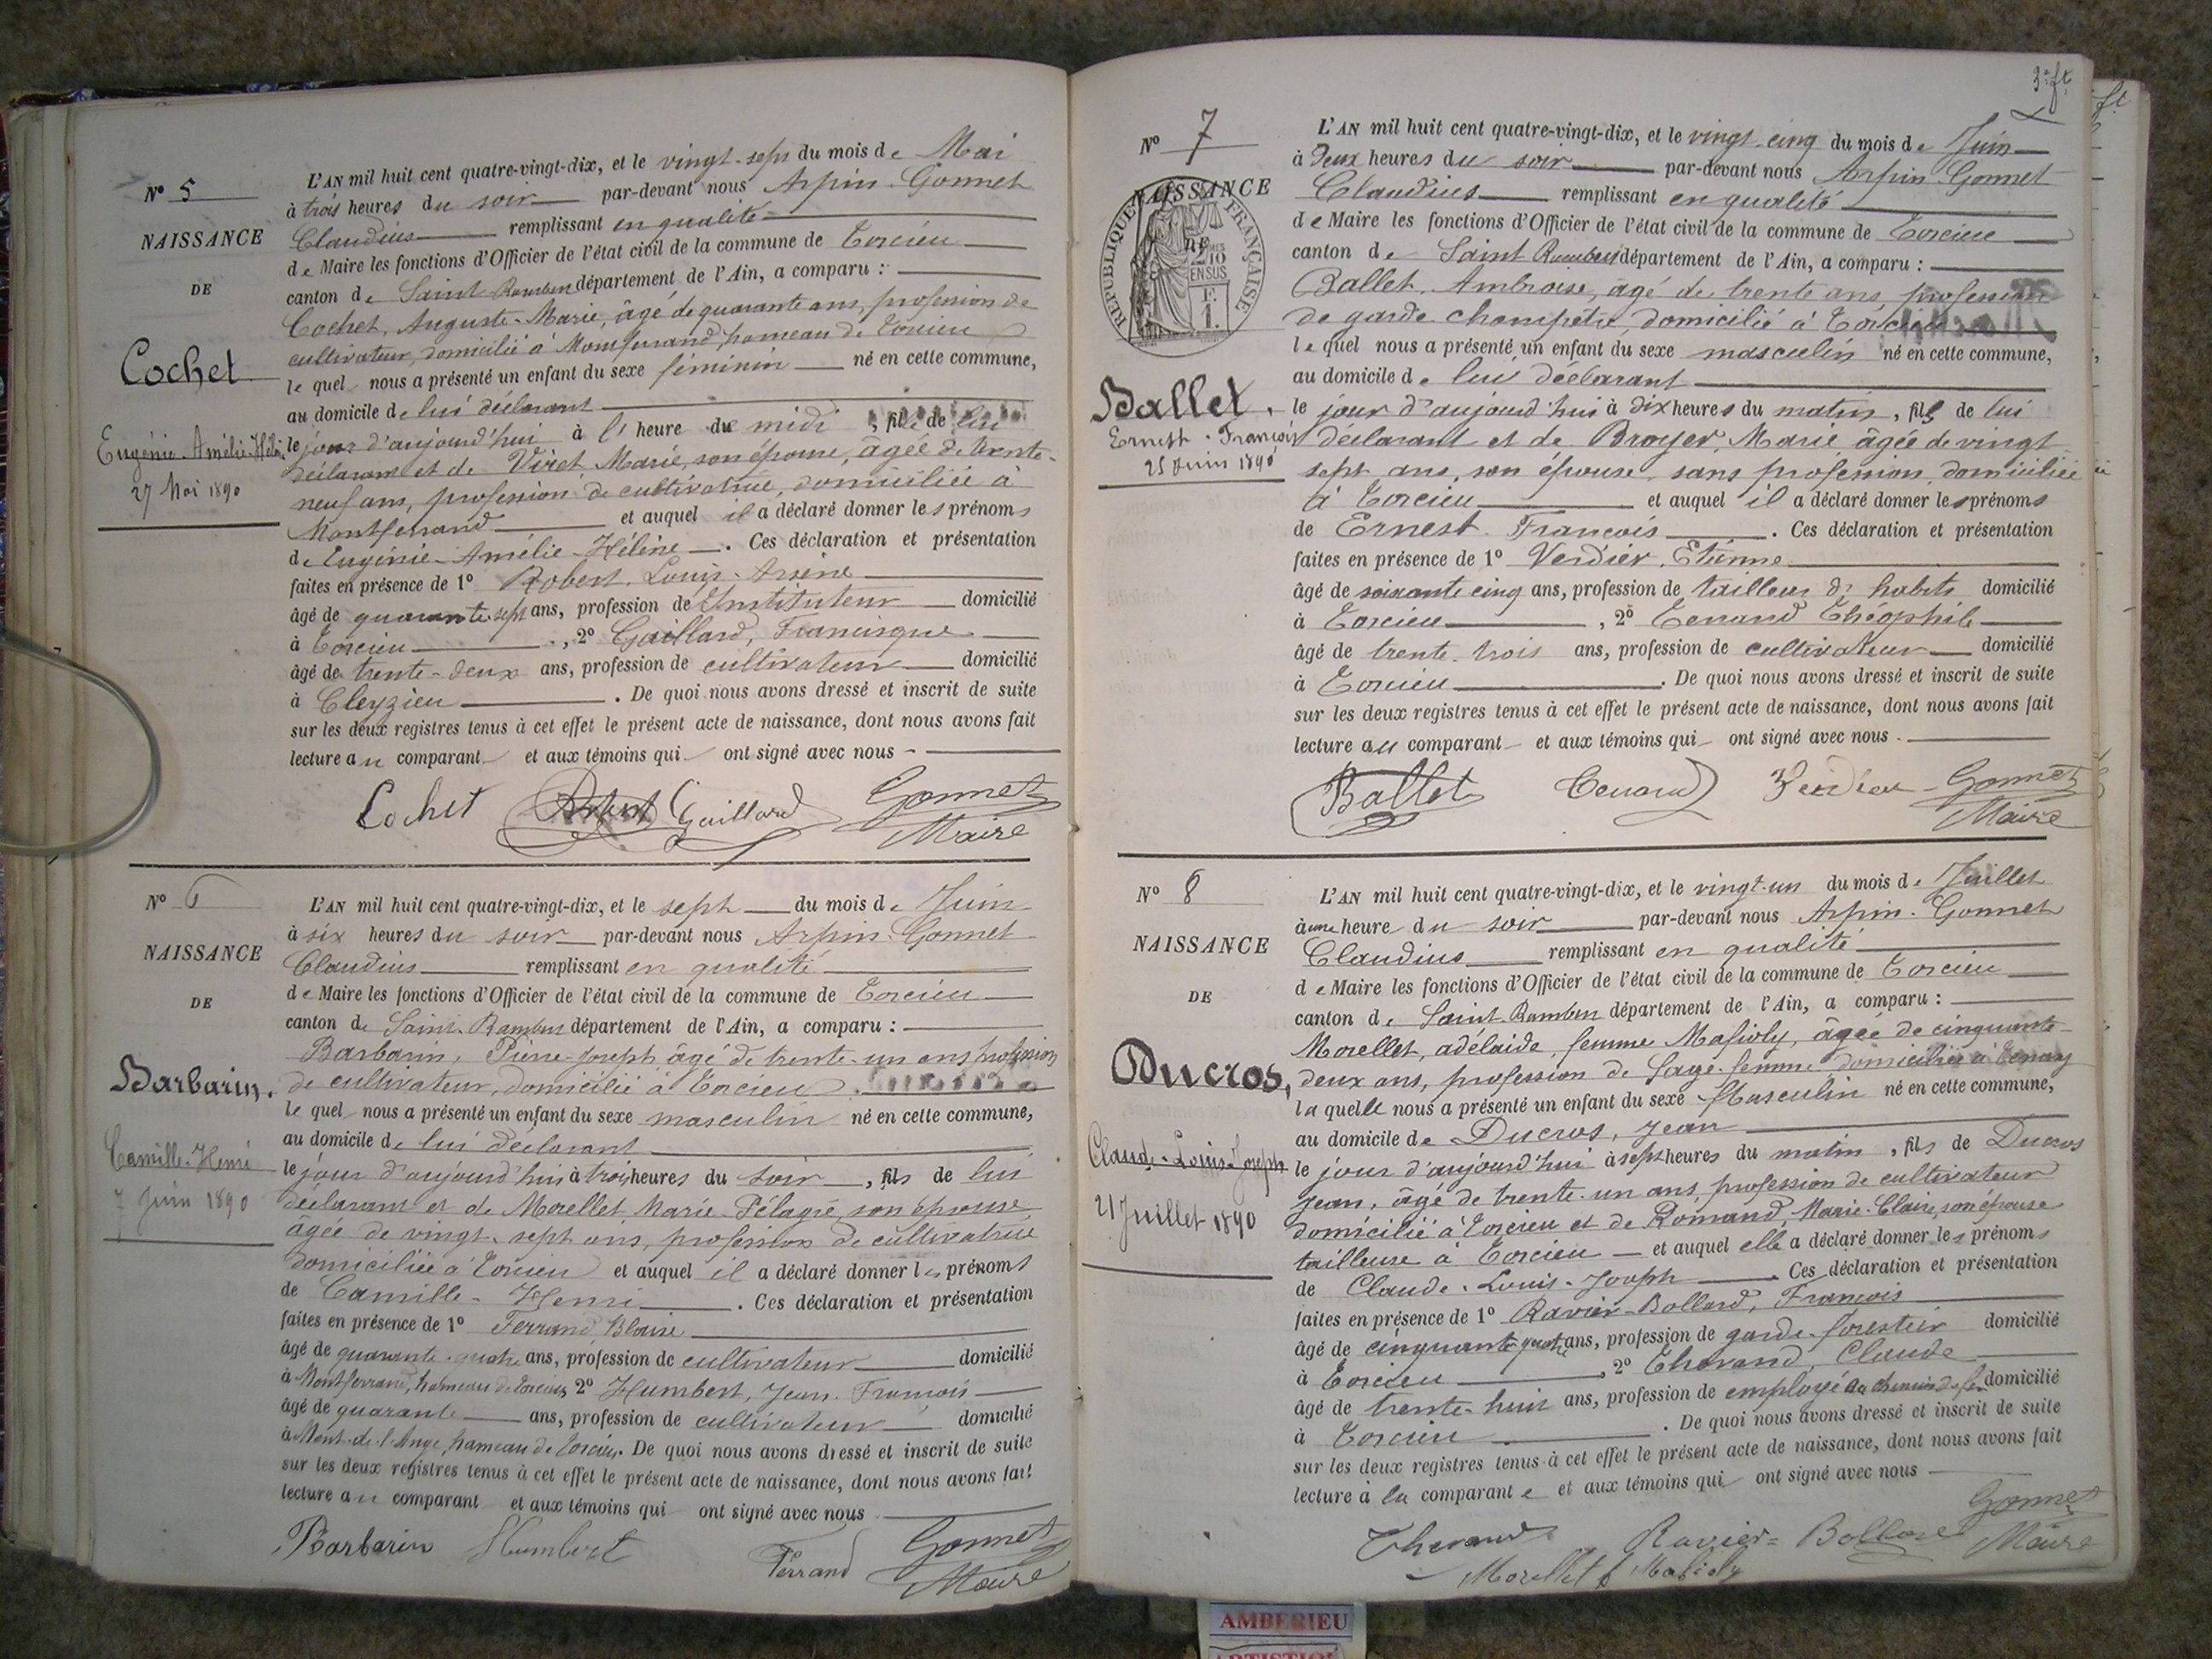 N° 5
NAISSANCE
DE
Cochet
Eugénie-Amélie-Hélène
27 Mai 1890
L'AN mil huit cent quatre-vingt-dix, et le vingt-sept du mois de Mai
à trois heures du soir par-devant nous Arpin-Gonnet
Claudius remplissant en qualité
de Maire les fonctions d'Officier de l'état civil de la commune de Torcieu
canton de Saint Rambert département de l'Ain, a comparu :
Cochet, Auguste-Marie, âgé de quarante ans, profession de
cultivateur, domicilié à Montferrand, hameau de Torcieu
le quel nous a présenté un enfant du sexe féminin né en cette commune,
au domicile de lui déclarant
le jour d'aujourd'hui à l'heure de midi, fille de lui
déclarant et de Viret Marie, son épouse, âgée de trente-
neuf ans, profession de cultivatrice, domiciliée à
Montferrand et auquel il a déclaré donner les prénoms
de Eugénie-Amélie-Hélène. Ces déclaration et présentation
faites en présence de 1° Robert, Louis-Arsène
âgé de quarante-sept ans, profession de Instituteur domicilié
à Torcieu, 2° Gaillard, Francisque
âgé de trente-deux ans, profession de cultivateur domicilié
à Cleyzieu. De quoi nous avons dressé et inscrit de suite
sur les deux registres tenus à cet effet le présent acte de naissance, dont nous avons fait
lecture au comparant et aux témoins qui ont signé avec nous
Cochet Robert Gaillard Gonnet
Maire
N° 6
NAISSANCE
DE
Barbarin.
Camille-Henri
7 Juin 1890
L'AN mil huit cent quatre-vingt-dix, et le sept du mois de Juin
à six heures du soir par-devant nous Arpin-Gonnet
Claudius remplissant en qualité
de Maire les fonctions d'Officier de l'état civil de la commune de Torcieu
canton de Saint-Rambert département de l'Ain, a comparu :
Barbarin, Pierre-Joseph, âgé de trente-un ans, profession
de cultivateur, domicilié à Torcieu
le quel nous a présenté un enfant du sexe masculin né en cette commune,
au domicile de lui déclarant
le jour d'aujourd'hui à trois heures du soir, fils de lui
déclarant et de Morellet Marie-Pélagie, son épouse,
âgée de vingt-sept ans, profession de cultivatrice
domiciliée à Torcieu et auquel il a déclaré donner les prénoms
de Camille-Henri. Ces déclaration et présentation
faites en présence de 1° Ferrand Blaise
âgé de quarante-quatre ans, profession de cultivateur domicilié
à Montferrand, hameau de Torcieu, 2° Humbert, Jean-François
âgé de quarante ans, profession de cultivateur domicilié
à Mont-de-l'Ange, hameau de Torcieu. De quoi nous avons dressé et inscrit de suite
sur les deux registres tenus à cet effet le présent acte de naissance, dont nous avons fait
lecture au comparant et aux témoins qui ont signé avec nous
Barbarin Humbert Ferrand Gonnet
Maire
3e ft
N° 7
NAISSANCE
RÉPUBLIQUE FRANÇAISE
Ballet.
Ernest-François
25 Juin 1890
L'AN mil huit cent quatre-vingt-dix, et le vingt-cinq du mois de Juin
à deux heures du soir par-devant nous Arpin-Gonnet
Claudius remplissant en qualité
de Maire les fonctions d'Officier de l'état civil de la commune de Torcieu
canton de Saint Rambert département de l'Ain, a comparu :
Ballet, Ambroise, âgé de trente ans, profession
de garde champêtre, domicilié à Torcieu
le quel nous a présenté un enfant du sexe masculin né en cette commune,
au domicile de lui déclarant
le jour d'aujourd'hui à dix heures du matin, fils de lui
déclarant et de Broyer, Marie âgée de vingt
sept ans, son épouse, sans profession, domiciliée
à Torcieu et auquel il a déclaré donner les prénoms
de Ernest-François. Ces déclaration et présentation
faites en présence de 1° Verdier, Etienne
âgé de soixante cinq ans, profession de tailleur d'habits domicilié
à Torcieu, 2° Tenand Théophile
âgé de trente-trois ans, profession de cultivateur domicilié
à Torcieu. De quoi nous avons dressé et inscrit de suite
sur les deux registres tenus à cet effet le présent acte de naissance, dont nous avons fait
lecture au comparant et aux témoins qui ont signé avec nous.
Ballet Tenand Verdier Gonnet
Maire
N° 8
NAISSANCE
DE
Ducros,
Claude-Louis-Joseph
21 Juillet 1890
L'AN mil huit cent quatre-vingt-dix, et le vingt-un du mois de Juillet
à une heure du soir par-devant nous Arpin-Gonnet
Claudius remplissant en qualité
de Maire les fonctions d'Officier de l'état civil de la commune de Torcieu
canton de Saint-Rambert département de l'Ain, a comparu :
Morellet, adélaide, femme Mafioly, âgée de cinquante-
deux ans, profession de Sage-femme domiciliée à Tenay
la quelle nous a présenté un enfant du sexe Masculin né en cette commune,
au domicile de Ducros, Jean
le jour d'aujourd'hui à sept heures du matin, fils de Ducros
Jean, âgé de trente-un ans, profession de cultivateur
domicilié à Torcieu et de Romand, Marie-Claire, son épouse
tailleuse à Torcieu et auquel elle a déclaré donner les prénoms
de Claude-Louis-Joseph. Ces déclaration et présentation
faites en présence de 1° Ravier-Bollard, François
âgé de cinquante-quatre ans, profession de garde-forestier domicilié
à Torcieu, 2° Thevand, Claude
âgé de trente-huit ans, profession de employé au chemin de fer domicilié
à Torcieu. De quoi nous avons dressé et inscrit de suite
sur les deux registres tenus à cet effet le présent acte de naissance, dont nous avons fait
lecture à la comparante et aux témoins qui ont signé avec nous
Thevand Ravier-Bollard Gonnet
Morellet f Mafioly Maire
AMBERIEU